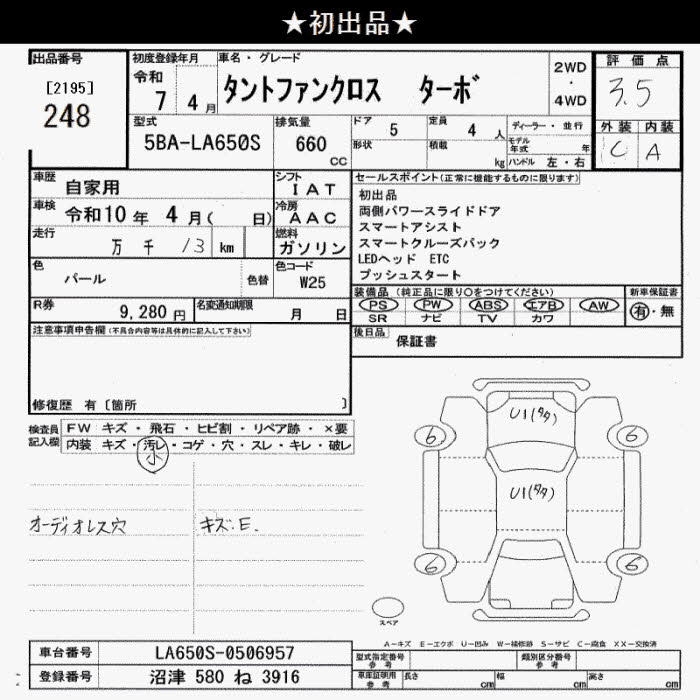 ★初出品★
出品番号
[2195]
248
初度登録年月
令和
7年 4月
車名・グレード
タントファンクロス ターボ
2WD
・
4WD
評価点
3.5
外装 内装
C A
型式
5BA-LA650S
排気量
660
cc
ドア
5
定員
4 人
形状
積載
kg
ディーラー・並行
モデル年式 年
ハンドル 左・右
車歴
自家用
シフト
IAT
車検
令和10年 4月( 日)
冷房
AAC
走行
万 千 13 km
燃料
ガソリン
色
パール
色替
色コード
W25
R券
9,280円
名変通知期限
月 日
セールスポイント(正常に機能するものに限ります)
初出品
両側パワースライドドア
スマートアシスト
スマートクルーズパック
LEDヘッド ETC
プッシュスタート
装備品(純正品に限り〇をつけてください)
PS PW ABS エアB AW
SR ナビ TV カワ
新車保証書
有・無
後日品
保証書
注意事項申告欄(不具合内容等は具体的に記入して下さい)
修復歴 有〔箇所 〕
検査員
記入欄
FW キズ・飛石・ヒビ割・リペア跡・×要
内装 キズ・汚レ・コゲ・穴・スレ・キレ・破レ
小
オーディオレス穴
キズ:E.
U1(タタ)
6. 6
U1(タタ)
6 6
スペア
A-キズ E-エクボ U-凹み W-補修跡 S-サビ C-腐食 XX-交換済
車台番号
LA650S-0506957
登録番号
沼津 580 ね 3916
型式指定番号
参考
類別区分番号
参考
車庫証明用
参考
長さ cm
幅 cm
高さ cm